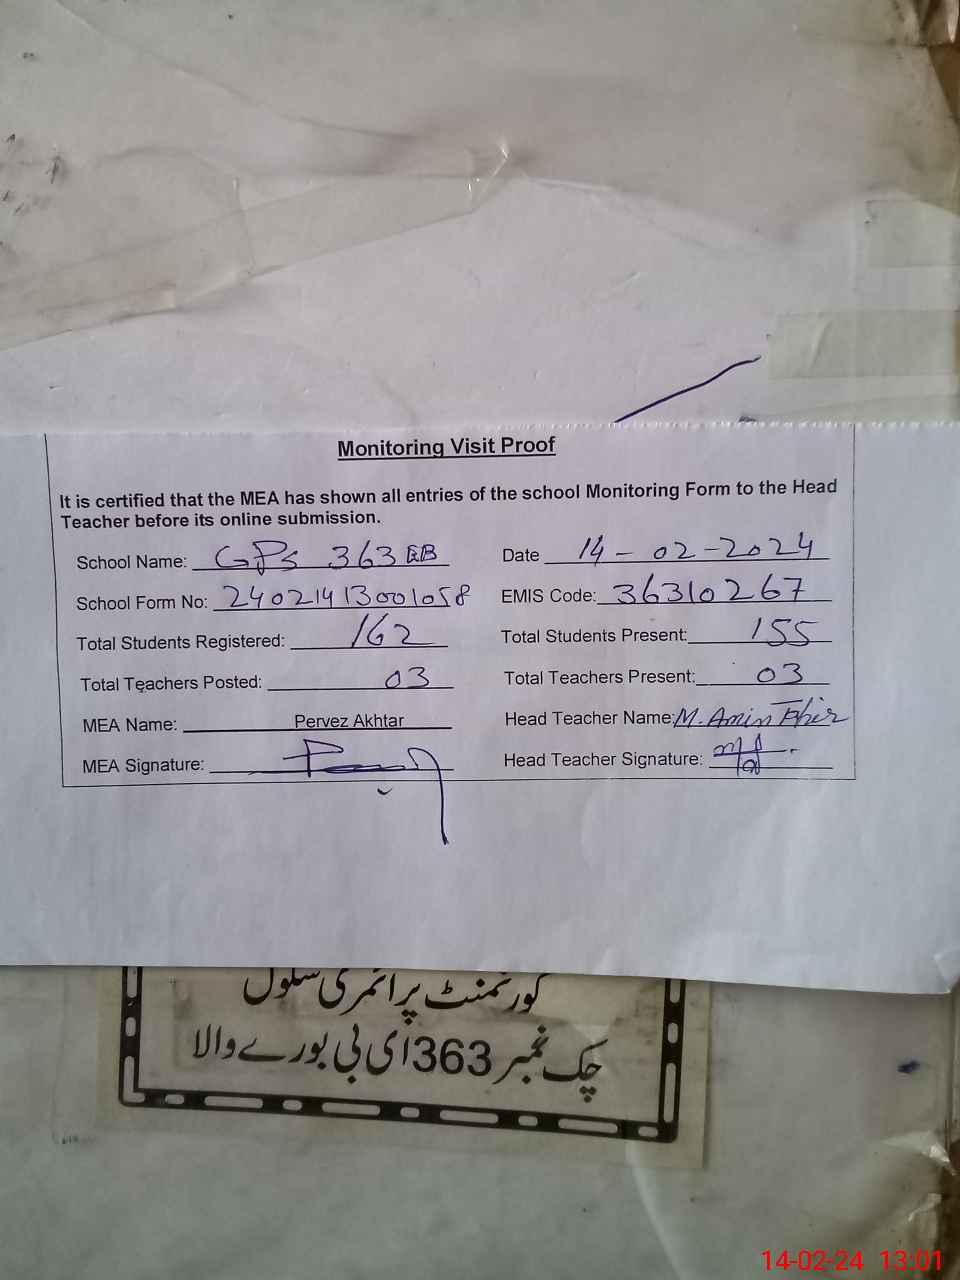 Monitoring Visit Proof
It is certified that the MEA has shown all entries of the school Monitoring Form to the Head
Teacher before its online submission.
School Name: GPS 363 EB Date 14-02-2024
School Form No: 24021413001058 EMIS Code: 36310267
Total Students Registered: 162 Total Students Present: 155
Total Teachers Posted: 03 Total Teachers Present: 03
MEA Name: Pervez Akhtar Head Teacher Name: M. Amin
MEA Signature: Head Teacher Signature:
گورنمنٹ پرائمری سکول
چک نمبر 363 ای بی بورے والا
14-02-24 13:01